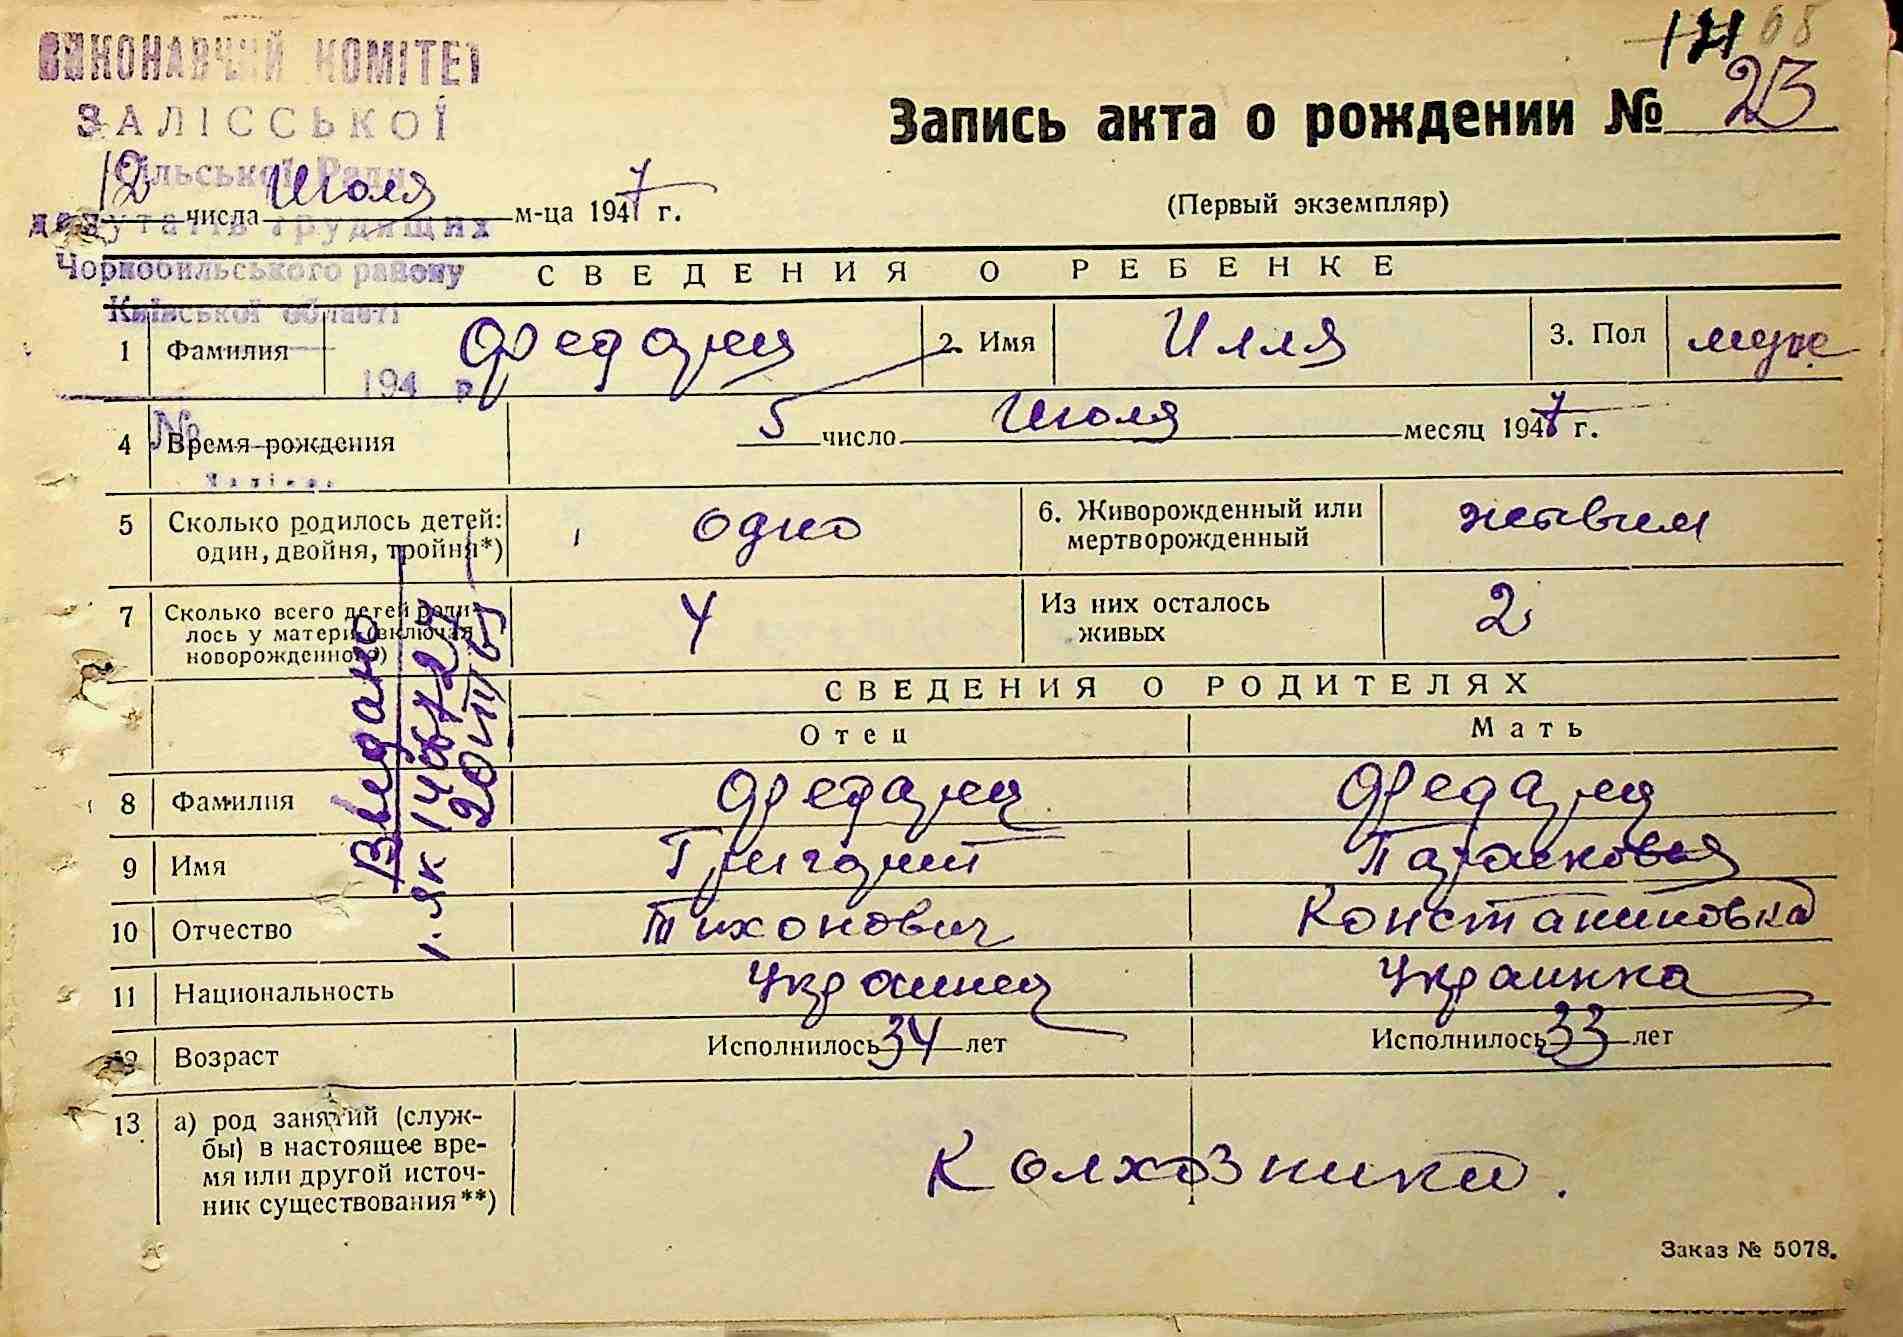 ВИКОНАВЧИЙ КОМІТЕТ
ЗАЛІССЬКОЇ
Сільської Ради
депутатів трудящих
Чорнобильського району
Київської області
194 р.
№
171 68
Запись акта о рождении № 23
(Первый экземпляр)
12 числа Июля м-ца 1947 г.
СВЕДЕНИЯ О РЕБЕНКЕ
1 Фамилия Федорец 2. Имя Илля 3. Пол муж
4 Время рождения 5 число Июля месяц 1947 г.
5 Сколько родилось детей: один, двойня, тройня*) одно 6. Живорожденный или мертворожденный живым
7 Сколько всего детей родилось у матери (включая новорожденного) 4 Из них осталось живых 2
СВЕДЕНИЯ О РОДИТЕЛЯХ
Отец Мать
8 Фамилия Федорец Федорец
9 Имя Григорий Парасковья
10 Отчество Тихонович Константиновна
11 Национальность Украинец Украинка
12 Возраст Исполнилось 34 лет Исполнилось 33 лет
13 а) род занятий (служ-
бы) в настоящее вре-
мя или другой источ-
ник существования**)
Колхозники.
Заказ № 5078.